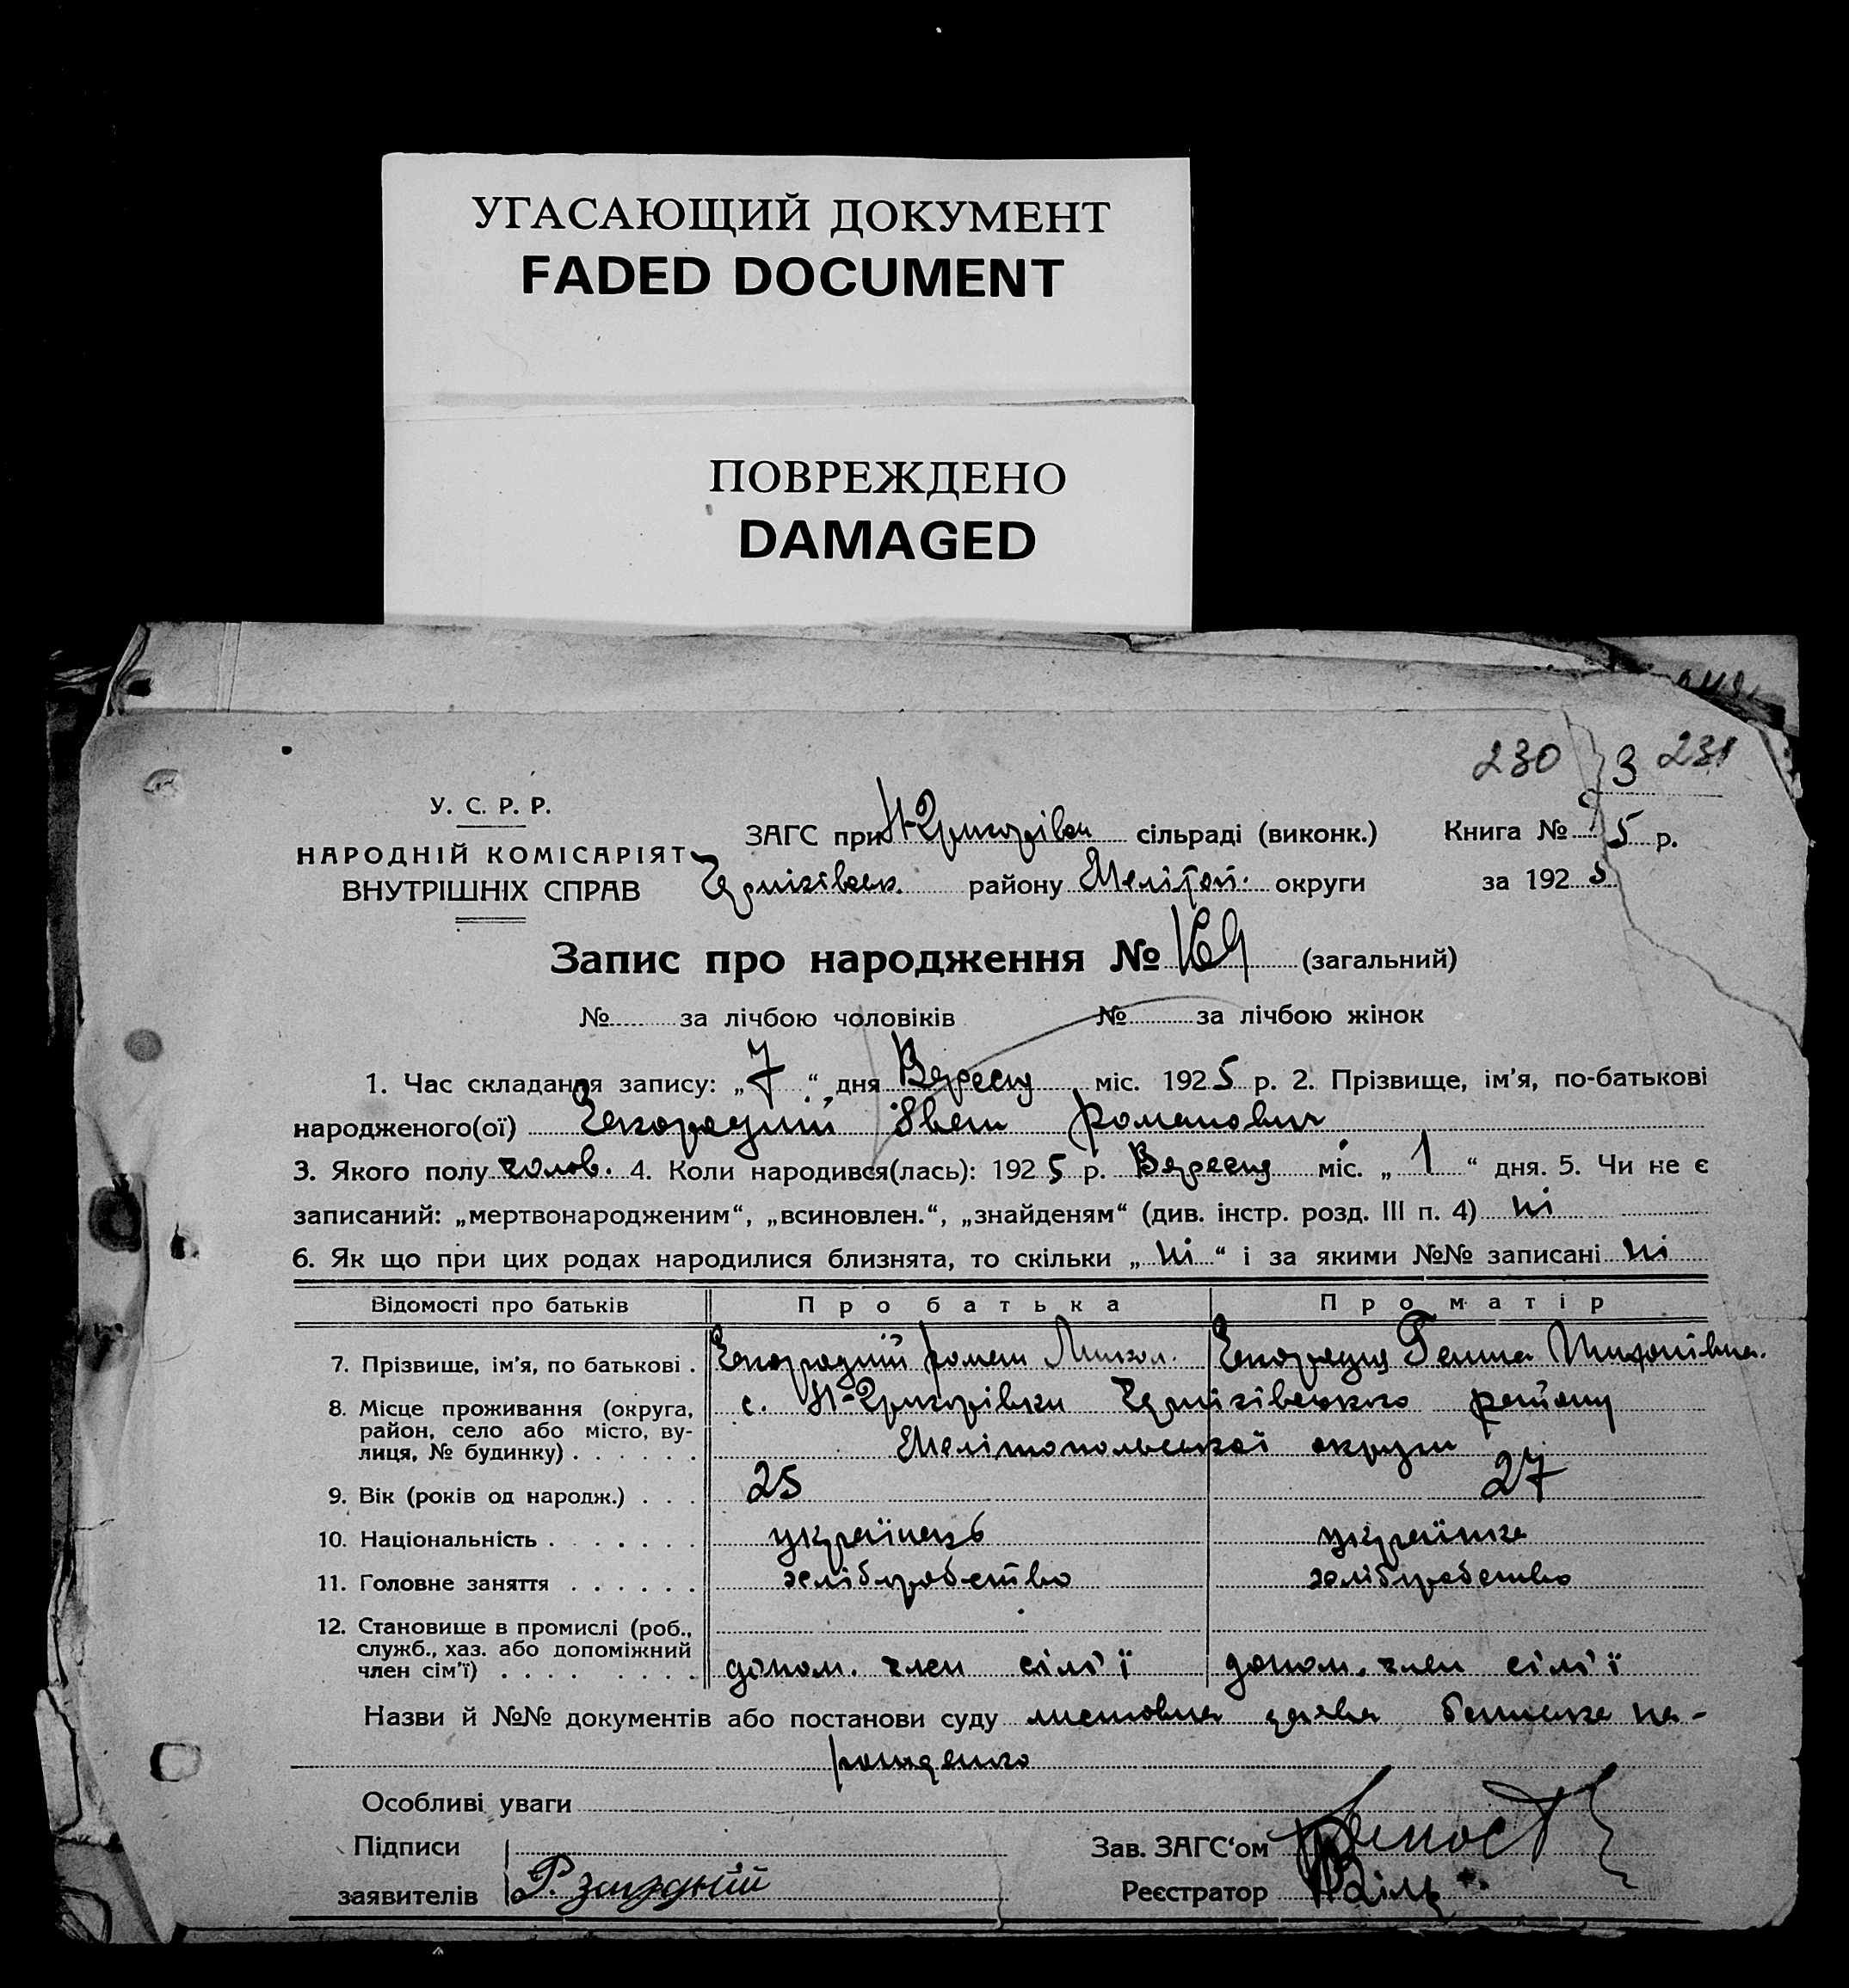 УГАСАЮЩИЙ ДОКУМЕНТ
FADED DOCUMENT
ПОВРЕЖДЕНО
DAMAGED
230 3 231
У. С. Р. Р.
НАРОДНІЙ КОМІСАРІЯТ
ВНУТРІШНІХ СПРАВ
ЗАГС при Н-Григорівськ сільраді (виконк.) Книга № 5 р.
Чернігівськ. району Мелітоп. округи за 1925
Запис про народження № (загальний)
№ за лічбою чоловіків № за лічбою жінок
1. Час складання запису: „7“ дня Вересня міс. 1925 р. 2. Прізвище, ім'я, по-батькові
народженого(ої) Іван Романович
3. Якого полу чолов. 4. Коли народився(лась): 1925 р. Вересня міс. „1“ дня. 5. Чи не є
записаний: „мертвонародженим“, „всиновлен.“, „знайденям“ (див. інстр. розд. III п. 4) ні
6. Як що при цих родах народилися близнята, то скільки „ні“ і за якими №№ записані ні
Відомості про батьків Про батька Про матір
7. Прізвище, ім'я, по батькові . Роман Микол. Ганна
8. Місце проживання (округа, район, село або місто, вулиця, № будинку) . . . . . . с. Н-Григорівки Чернігівського району
Мелітопольської округи
9. Вік (років од народж.) . . . 25 27
10. Національність . . . . . . . українець українка
11. Головне заняття . . . . . . хліборобство хліборобство
12. Становище в промислі (роб., служб., хаз. або допоміжний член сім'ї) . . . . . . . . допом. член сім'ї допом. член сім'ї
Назви й №№ документів або постанови суду заява батька на-
рожденого
Особливі уваги
Підписи Зав. ЗАГС'ом
заявителів Р. Реєстратор